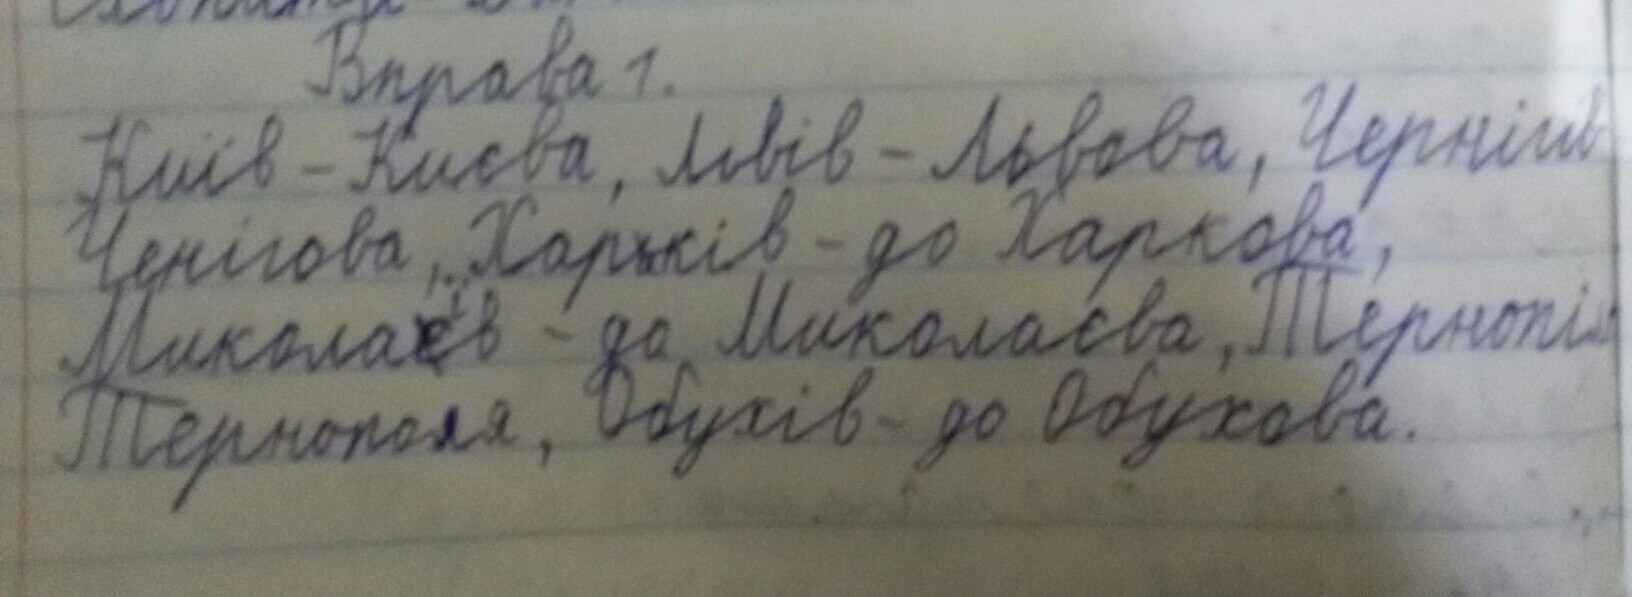 Вправа 1.
Київ - Києва, Львів - Львова, Чернігів
Ченігова, Харків - до Харкова,
Миколаїв - до Миколаєва, Тернопіль
Тернополя, Обухів - до Обухова.